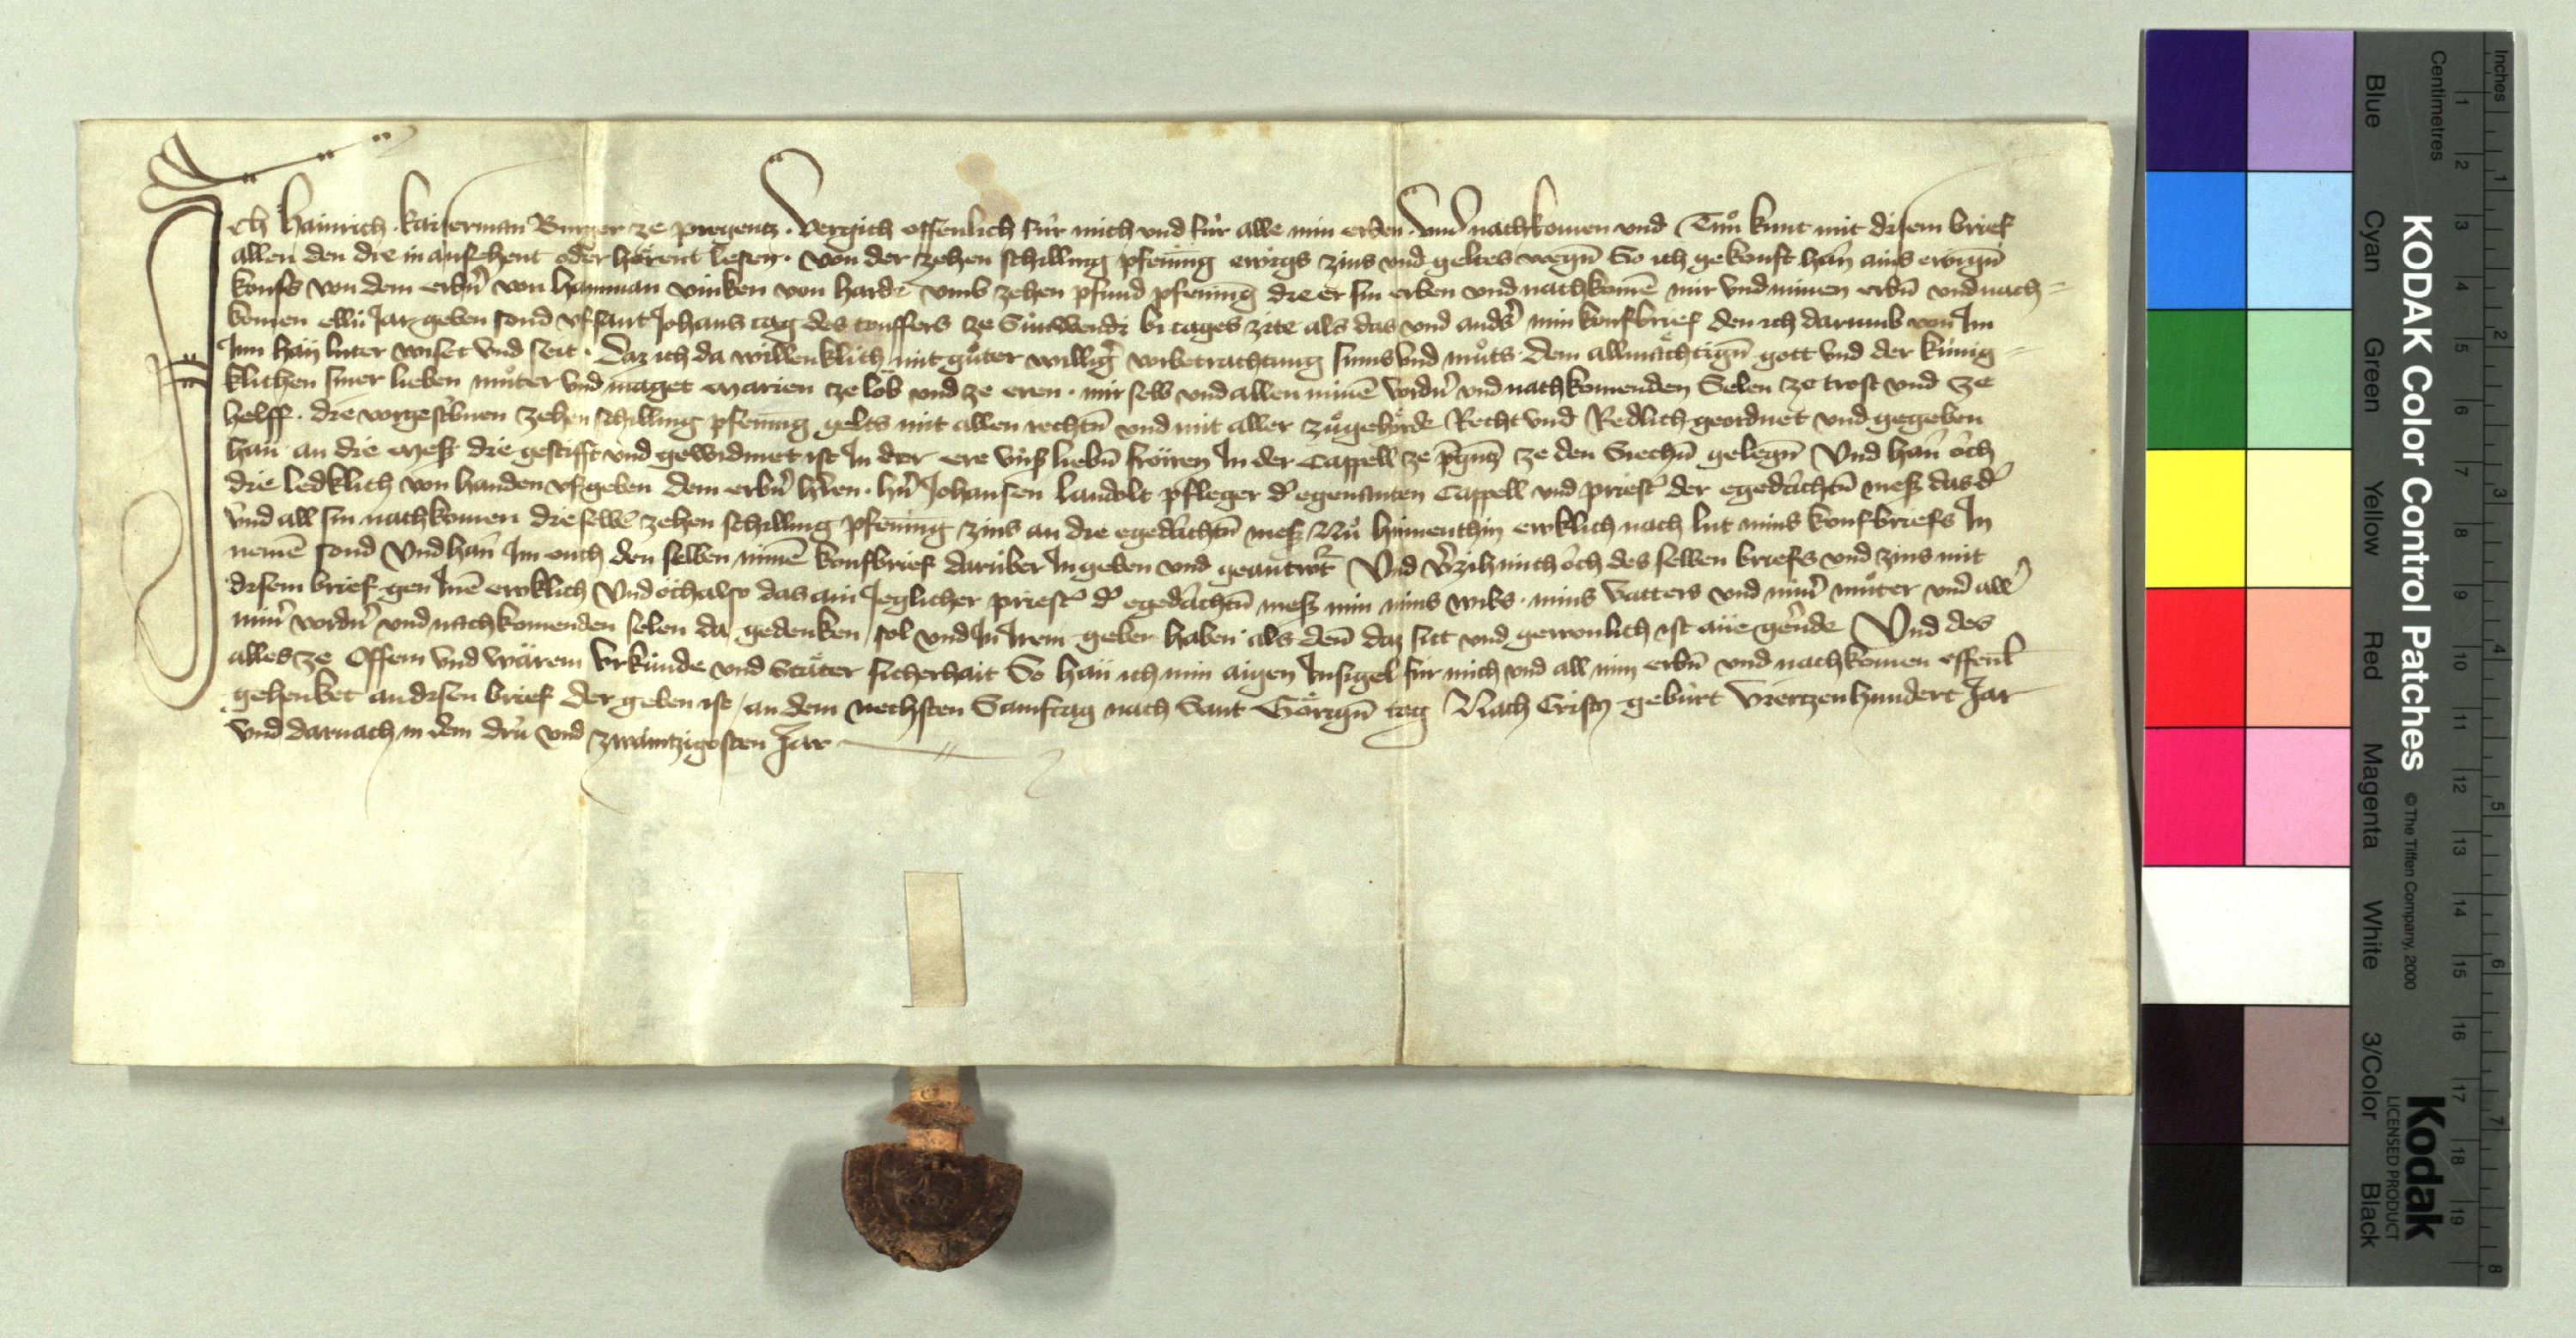 Ich Hainrich kaiserman Burger ze pregentz vergich offenlich für mich vnd für alle min erben vnd nachkomen vnd Tůn kunt mit disem brief
allen den die in ansehent oder hörent lesen von der zehen schilling pfening ewigs zins vnd geltes wegn̄ So ich gekouft han ains ewign̄
koufs von dem erbn̄ von hannman vinken von harde vmb zehen pfund pfening die er sin erben vnd nachkomē mir vnd minen erbn̄ vnd nach=
komen ellü Jar geben sond vf sant Johans tag des touffers ze Sunwendi bi tages zite als das vnd anders min koufbrief den ich darumb von Im
Inn han luter wiset vnd seit. Daz ich da willenklich mit gůter williger vorbetrachtung sinns vnd můts dem allmächtign̄ gott vnd der künig=
klichen siner lieben můter vnd maget marien ze lob vnd ze eren. mir selb vnd allen minē vordn̄ vnd nachkomenden Selen ze trost vnd ze
helff. die vorgeschribnen zehen schilling pfening gelts mit allen rechtn̄ vnd mit aller zůgehörde Recht vnd Redlich geordnet vnd gegeben
han an die mess die gestifft vnd gewidmet ist In der ere vnser liebn̄ fröwen In der Cappell ze pregn̄tz ze den Siechn̄ gelegn̄ Vnd han öch
die ledklich von handen vfgeben dem erbn̄ hren. hn̄ Johansen landolt pfleger d' egenanten Cappell vnd priest' der egedâchtn̄ mess das d'
vnd all sin nachkomen die selbē zehen schilling pfening zins an die egedâchtn̄ mess Nů hinnenthin ewklich nach lut mins koufbriefs In
nemē sond Vnd han Im ouch den selben minē koufbrief darüber In geben vnd geantwrt Vnd v'zih mich öch des selben briefs vnd zins mit
disem brief gen Inē ewklich Vnd öch also das ain Jeglicher priest' d' egedâchtn̄ mess min mins wibs. mins vatters vnd min' můter vnd all'
min' vordn̄ vnd nachkomenden selen da gedenken sol vnd In Irem gebet haben als denn daz sitt vnd gewonlich ist ane gerde Vnd des
alles ze Offem vnd wârem vrkünde vnd Stäter sicherhait So han ich min aigen Insigel für mich vnd all min erbn̄ vnd nachkomen offenl
gehenket an disen brief der geben ist an dem nechsten Samstag nach Sant Görign̄ tag Nach Cristz gebürt vierzenhundert Jar
vnd darnach in dem drü vnd zwaintzigosten Jar
KODAK Color Control Patches © The Tiffen Company, 2000 Kodak LICENSED PRODUCT
Blue Cyan Green Yellow Red Magenta White 3/Color Black
Centimetres 1 2 3 4 5 6 7 8 9 10 11 12 13 14 15 16 17 18 19
Inches 1 2 3 4 5 6 7 8